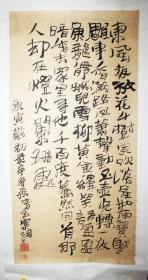 東風夜放花千樹更吹落星如雨寶
馬雕車香滿路鳳簫聲動玉壺光轉一夜
魚龍舞蛾兒雪柳黃金縷笑語盈盈
暗香去眾里尋他千百度驀然回首那
人却在燈火闌珊處
庚寅歲初